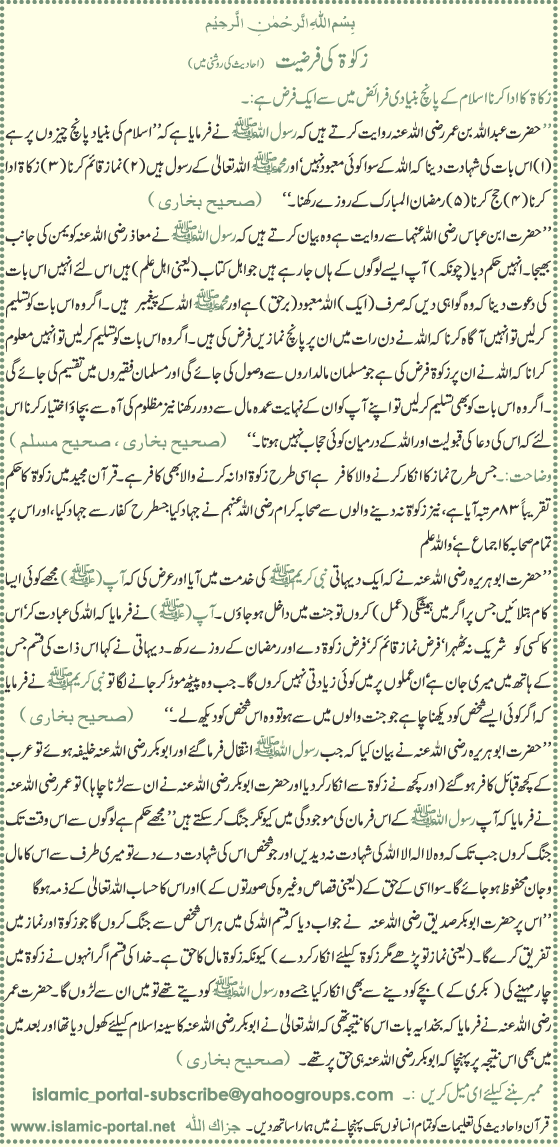 بِسْمِ اللهِ الرَّحْمٰنِ الرَّحِيْمِ
زکوٰۃ کی فرضیت (احادیث کی روشنی میں)
زکاۃ کا ادا کرنا اسلام کے پانچ بنیادی فرائض میں سے ایک فرض ہے:۔
’’حضرت عبداللہ بن عمر رضی اللہ عنہ روایت کرتے ہیں کہ رسول اللہ ﷺ نے فرمایا ہے کہ ’’اسلام کی بنیاد پانچ چیزوں پر ہے
(۱) اس بات کی شہادت دینا کہ اللہ کے سوا کوئی معبود نہیں‘ اور محمد ﷺ اللہ تعالیٰ کے رسول ہیں (۲) نماز قائم کرنا (۳) زکاۃ ادا
کرنا (۴) حج کرنا (۵) رمضان المبارک کے روزے رکھنا۔‘‘ (صحیح بخاری)
’’حضرت ابن عباس رضی اللہ عنہما سے روایت ہے وہ بیان کرتے ہیں کہ رسول اللہ ﷺ نے معاذ رضی اللہ عنہ کو یمن کی جانب
بھیجا۔ انہیں حکم دیا (چونکہ) آپ ایسے لوگوں کے ہاں جا رہے ہیں جو اہل کتاب (یعنی اہل علم) ہیں اس لئے انہیں اس بات
کی دعوت دینا کہ وہ گواہی دیں کہ صرف (ایک) اللہ معبود (برحق) ہے اور محمد ﷺ اللہ کے پیغمبر ہیں۔ اگر وہ اس بات کو تسلیم
کرلیں تو انہیں آگاہ کرنا کہ اللہ نے دن رات میں ان پر پانچ نمازیں فرض کی ہیں۔ اگر وہ اس بات کو تسلیم کرلیں تو انہیں معلوم
کرانا کہ اللہ نے ان پر زکوۃ فرض کی ہے جو مسلمان مالداروں سے وصول کی جائے گی اور مسلمان فقیروں میں تقسیم کی جائے گی
۔ اگر وہ اس بات کو بھی تسلیم کرلیں تو اپنے آپ کو ان کے نہایت عمدہ مال سے دور رکھنا نیز مظلوم کی آہ سے بچاؤ اختیار کرنا اس
لئے کہ اس کی دعا کی قبولیت اور اللہ کے درمیان کوئی حجاب نہیں ہوتا۔‘‘ (صحیح بخاری ، صحیح مسلم)
وضاحت:۔ جس طرح نماز کا انکار کرنے والا کافر ہے اسی طرح زکوۃ ادا نہ کرنے والا بھی کافر ہے۔ قرآن مجید میں زکوۃ کا حکم
تقریباً ۸۳ مرتبہ آیا ہے، نیز زکوۃ نہ دینے والوں سے صحابہ کرام رضی اللہ عنہم نے جہاد کیا جسطرح کفار سے جہاد کیا، اور اس پر
تمام صحابہ کا اجماع ہے‘ واللہ علم
’’حضرت ابوہریرہ رضی اللہ عنہ نے کہ ایک دیہاتی نبی کریم ﷺ کی خدمت میں آیا اور عرض کی کہ آپ (ﷺ) مجھے کوئی ایسا
کام بتلائیں جس پر اگر میں ہمیشگی (عمل) کروں تو جنت میں داخل ہوجاؤں۔ آپ (ﷺ) نے فرمایا کہ اللہ کی عبادت کر‘ اس
کا کسی کو شریک نہ ٹھہرا‘ فرض نماز قائم کر‘ فرض زکوۃ دے اور رمضان کے روزے رکھ۔ دیہاتی نے کہا اس ذات کی قسم جس
کے ہاتھ میں میری جان ہے‘ ان عملوں پر میں کوئی زیادتی نہیں کروں گا۔ جب وہ پیٹھ موڑ کر جانے لگا تو نبی کریم ﷺ نے فرمایا
کہ اگر کوئی ایسے شخص کو دیکھنا چاہے جو جنت والوں میں سے ہو تو وہ اس شخص کو دیکھ لے۔‘‘ (صحیح بخاری)
’’حضرت ابوہریرہ رضی اللہ عنہ نے بیان کیا کہ جب رسول اللہ ﷺ انتقال فرما گئے اور ابوبکر رضی اللہ عنہ خلیفہ ہوئے تو عرب
کے کچھ قبائل کافر ہوگئے (اور کچھ نے زکوۃ سے انکار کردیا اور حضرت ابوبکر رضی اللہ عنہ نے ان سے لڑنا چاہا) تو عمر رضی اللہ عنہ
نے فرمایا کہ آپ رسول اللہ ﷺ کے اس فرمان کی موجودگی میں کیونکر جنگ کرسکتے ہیں ’’مجھے حکم ہے لوگوں سے اس وقت تک
جنگ کروں جب تک کہ وہ لا الہ الا اللہ کی شہادت نہ دیدیں اور جو شخص اس کی شہادت دے دے تو میری طرف سے اس کا مال
وجان محفوظ ہوجائے گا۔ سوا اسی کے حق کے (یعنی قصاص وغیرہ کی صورتوں کے) اور اس کا حساب اللہ تعالیٰ کے ذمہ ہوگا
’’اس پر حضرت ابوبکر صدیق رضی اللہ عنہ نے جواب دیا کہ قسم اللہ کی میں ہر اس شخص سے جنگ کروں گا جو زکوۃ اور نماز میں
تفریق کرے گا۔ (یعنی نماز تو پڑھے مگر زکوۃ کیلئے انکار کردے) کیونکہ زکوۃ مال کا حق ہے۔ خدا کی قسم اگر انہوں نے زکوۃ میں
چار مہینے کی (بکری کے) بچے کو دینے سے بھی انکار کیا جسے وہ رسول اللہ ﷺ کو دیتے تھے تو میں ان سے لڑوں گا۔ حضرت عمر
رضی اللہ عنہ نے فرمایا کہ بخدا یہ بات اس کا نتیجہ تھی کہ اللہ تعالیٰ نے ابوبکر رضی اللہ عنہ کا سینہ اسلام کیلئے کھول دیا تھا اور بعد میں
میں بھی اس نتیجہ پر پہنچا کہ ابوبکر رضی اللہ عنہ ہی حق پر تھے۔ (صحیح بخاری)
ممبر بننے کیلئے ای میل کریں :۔ islamic_portal-subscribe@yahoogroups.com
قرآن و احادیث کی تعلیمات کو تمام انسانوں تک پہنچانے میں ہمارا ساتھ دیں۔ جزاك الله www.islamic-portal.net